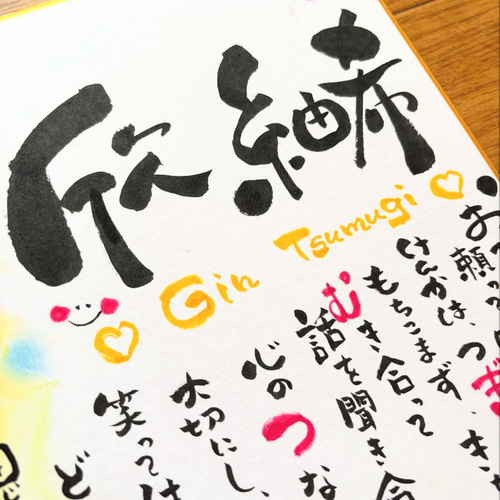 欣 紬希
Gin Tsumugi
お
頼っ
けんかは、つぎ
もちこまず、
むき合って
話を聞き合
心のつな
大切にし、
笑っては
ど